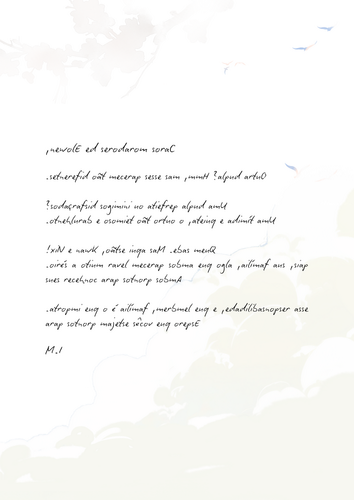 ,newolE ed serodarom soraC
.setnerefid oãt mecerap sesse sam ,mmH ?alpud artuO
?sodaçrafsid sogimini uo atiefrep alpud amU
.otnehlurab e osomiet oãt ortuo o ,ateiuq e adimít amU
!xiN e nawK ,oãtse iuqa saM .ebas meuQ
.oirés a otium ravel mecerap sobma euq ogla ,ailímaf aus ,siap
sues recehnoc arap sotnorp sobmA
.atropmi euq o é ailímaf ,merbmel euq e ,edadilibasnopser asse
arap sotnorp majetse sêcov euq orepsE
M.I